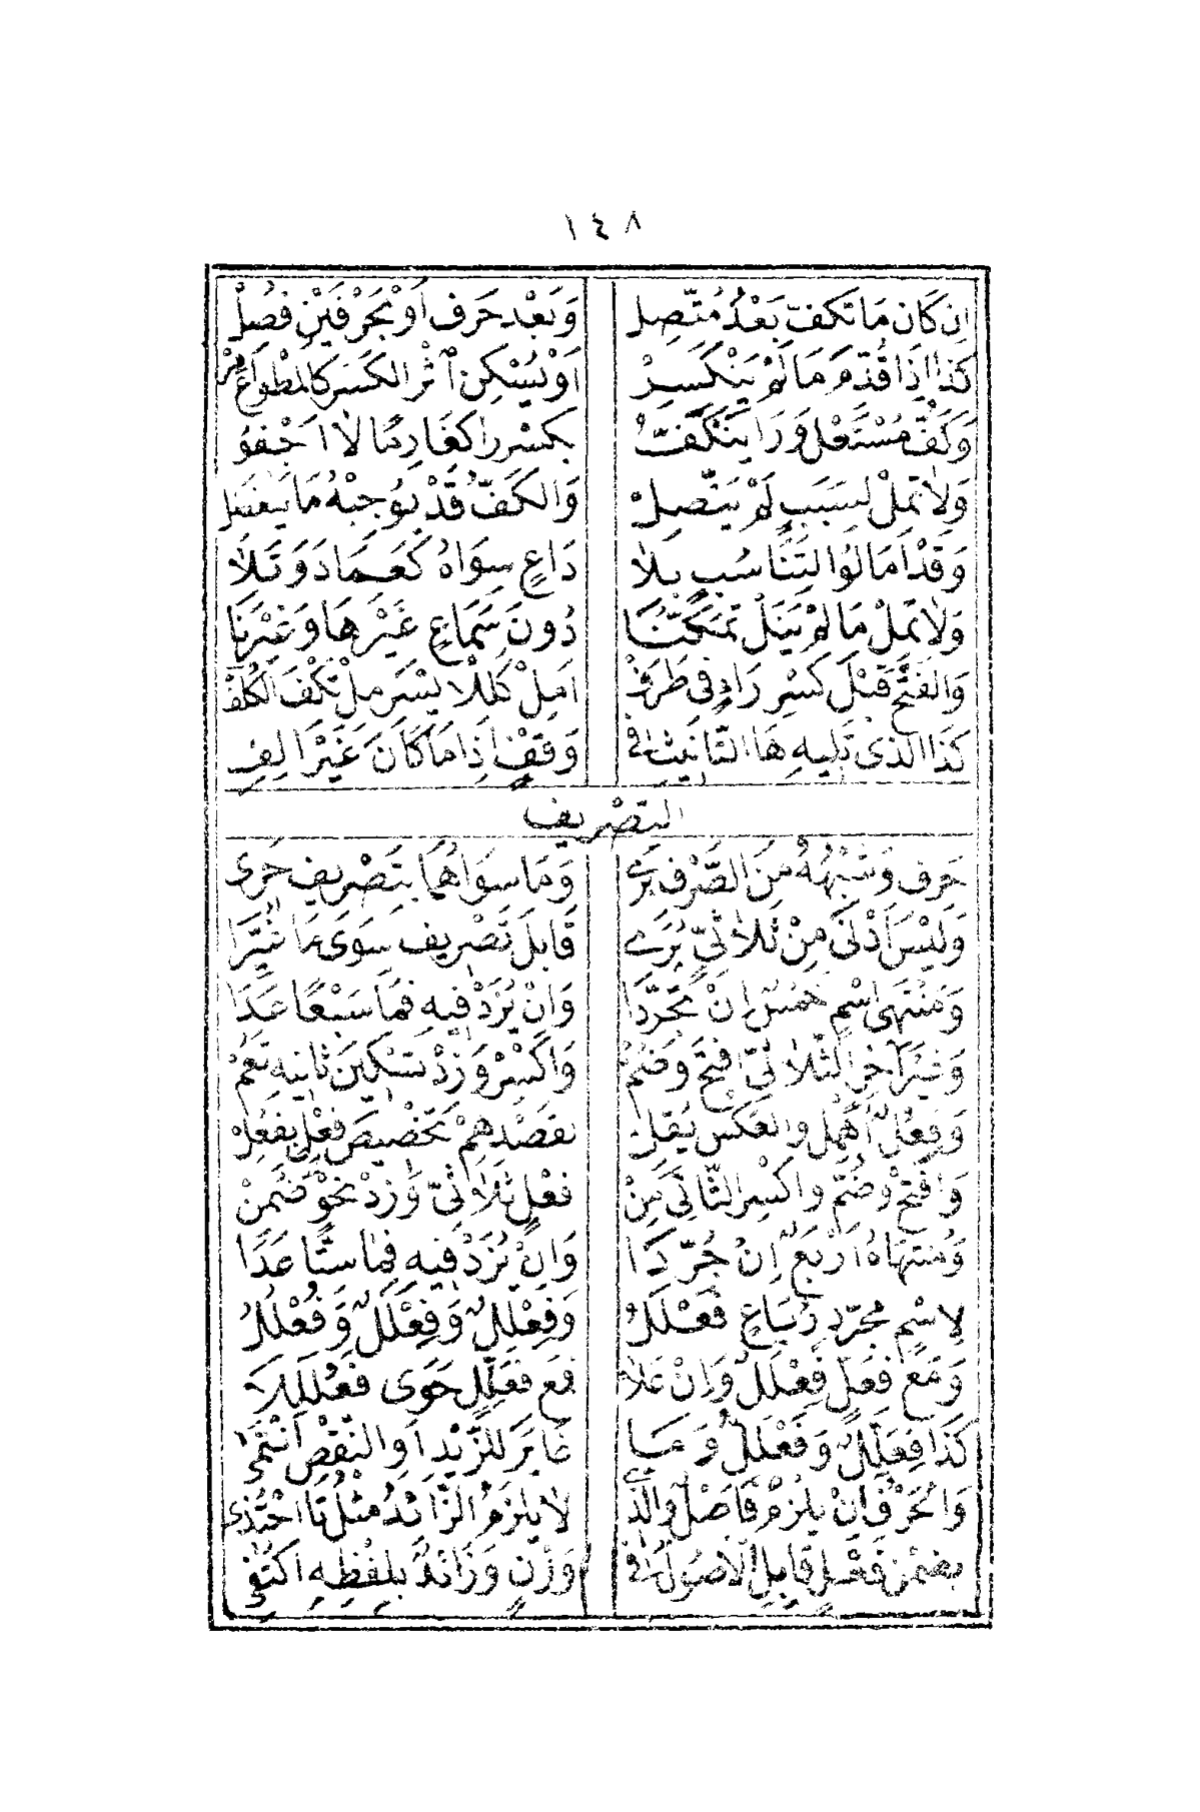 ١٤٨
اِن كَانَ مَا تَكفّ بَعْدُ مُتّصِل وَبَعْد حَرف اَوْ بحَرْفَيْنِ فُصِلْ
كَذَا اِذَا قُدّمَ مَا لَمْ يَنْكَسِرْ اَوْ يُسْكِن اثْر الكَسَر كالمطْوَاعَ مِرْ
وَكَفّ مُسْتَعْلٍ وَرَا يَنكَفّ بكسْر را كغَارِمًا لَا اَجْفُو
وَلَا تمِلْ لسَبَبٍ لَمْ يَتّصِلْ وَالكَفّ قَدْ يوُجِبْهُ مَا يَنفصل
وَقَدْ اَمَالُوا لتِنَاسُبٍ بلَا دَاعٍ سِوَاهُ كَعَمَادَ وَتَلَا
وَلَا تمِلْ مَا لَمْ يَنَلْ تمَكّنَا دُونَ سَمَاعٍ غَيْرَ هَا وَغَيْرَنَا
وَالفَتْحَ قَبْلَ كَسْرِ رَاءٍ فى طَرَفْ اَمِلْ كَلِلْايْسَرِ مِلْ تُكْفَ الكُلَفْ
كَذَا الّذى تَلِيهِ هَا التّانِيث فى وَقفٍ اِذَا مَا كَانَ غَيْرَ الِفِ
التصْريف
حَرف وَشبْهُهُ مِنَ الصّرْف بَرِى وَمَا سِوَاهُمَا بتَصْريفٍ حَرى
وَلَيْسَ اَدْنَى مِنْ ثُلَاثىّ يُرَى قَابلَ تَصْريف سِوَى مَا غُيّرَا
وَمُنْتهَى اسْمٍ خمْسٌ اِنْ تجَرّدَا وَاِنْ يُزَدْ فيهِ فمَا سَبْعًا عَدَا
وَغيْرَ آخِر الثّلَاثىّ افتَحْ وَضُمْ وَاكْسِرْ وَزِدْ تَسْكينَ ثانيه تَعُمْ
وَفعُلٌ اُهْملَ والعَكْس يَقلّ لقَصْدهِمْ تَخْصيصَ فِعْلٍ بفُعِلْ
وَافتَحْ وَضُمّ واكْسِر الثّانىَ مِنْ فعْلٍ ثُلَاثىّ وَزدْ نحْوَ ضُمِنْ
وَمُنتهَاهُ اَرْبَعٌ اِنْ جُرّدَا وَاِنْ يُزَدْ فيهِ فمَا ستّا عَدَا
لِاسْمٍ مجَرّدٍ رُبَاعٍ فَعْلَلُ وَفِعْلِلٌ وَفِعْلَلٌ وَفُعْلُلُ
وَمَعْ فِعَلّ فُعْلَلٌ وَاِنْ عَلَا فمَعْ فَعَلّلٍ حَوَى فَعْلَلِلَا
كَذَا فُعَلّلٌ وَفِعْلَلّ وَمَا غَايَر للزّيْدِ اَو النّقْصِ انْتَمَى
وَالحَرْفُ اِنْ يلزَمْ فَاَصْلٌ وَالّذى لَا يلزَمُ الزّائدُ مثْلُ تَا احْتُذى
بضمْنِ فعْلٍ قَابِلِ الْاصُولَ فى وَزْنٍ وَزَائدٌ بلفْظِهِ اكتُفى